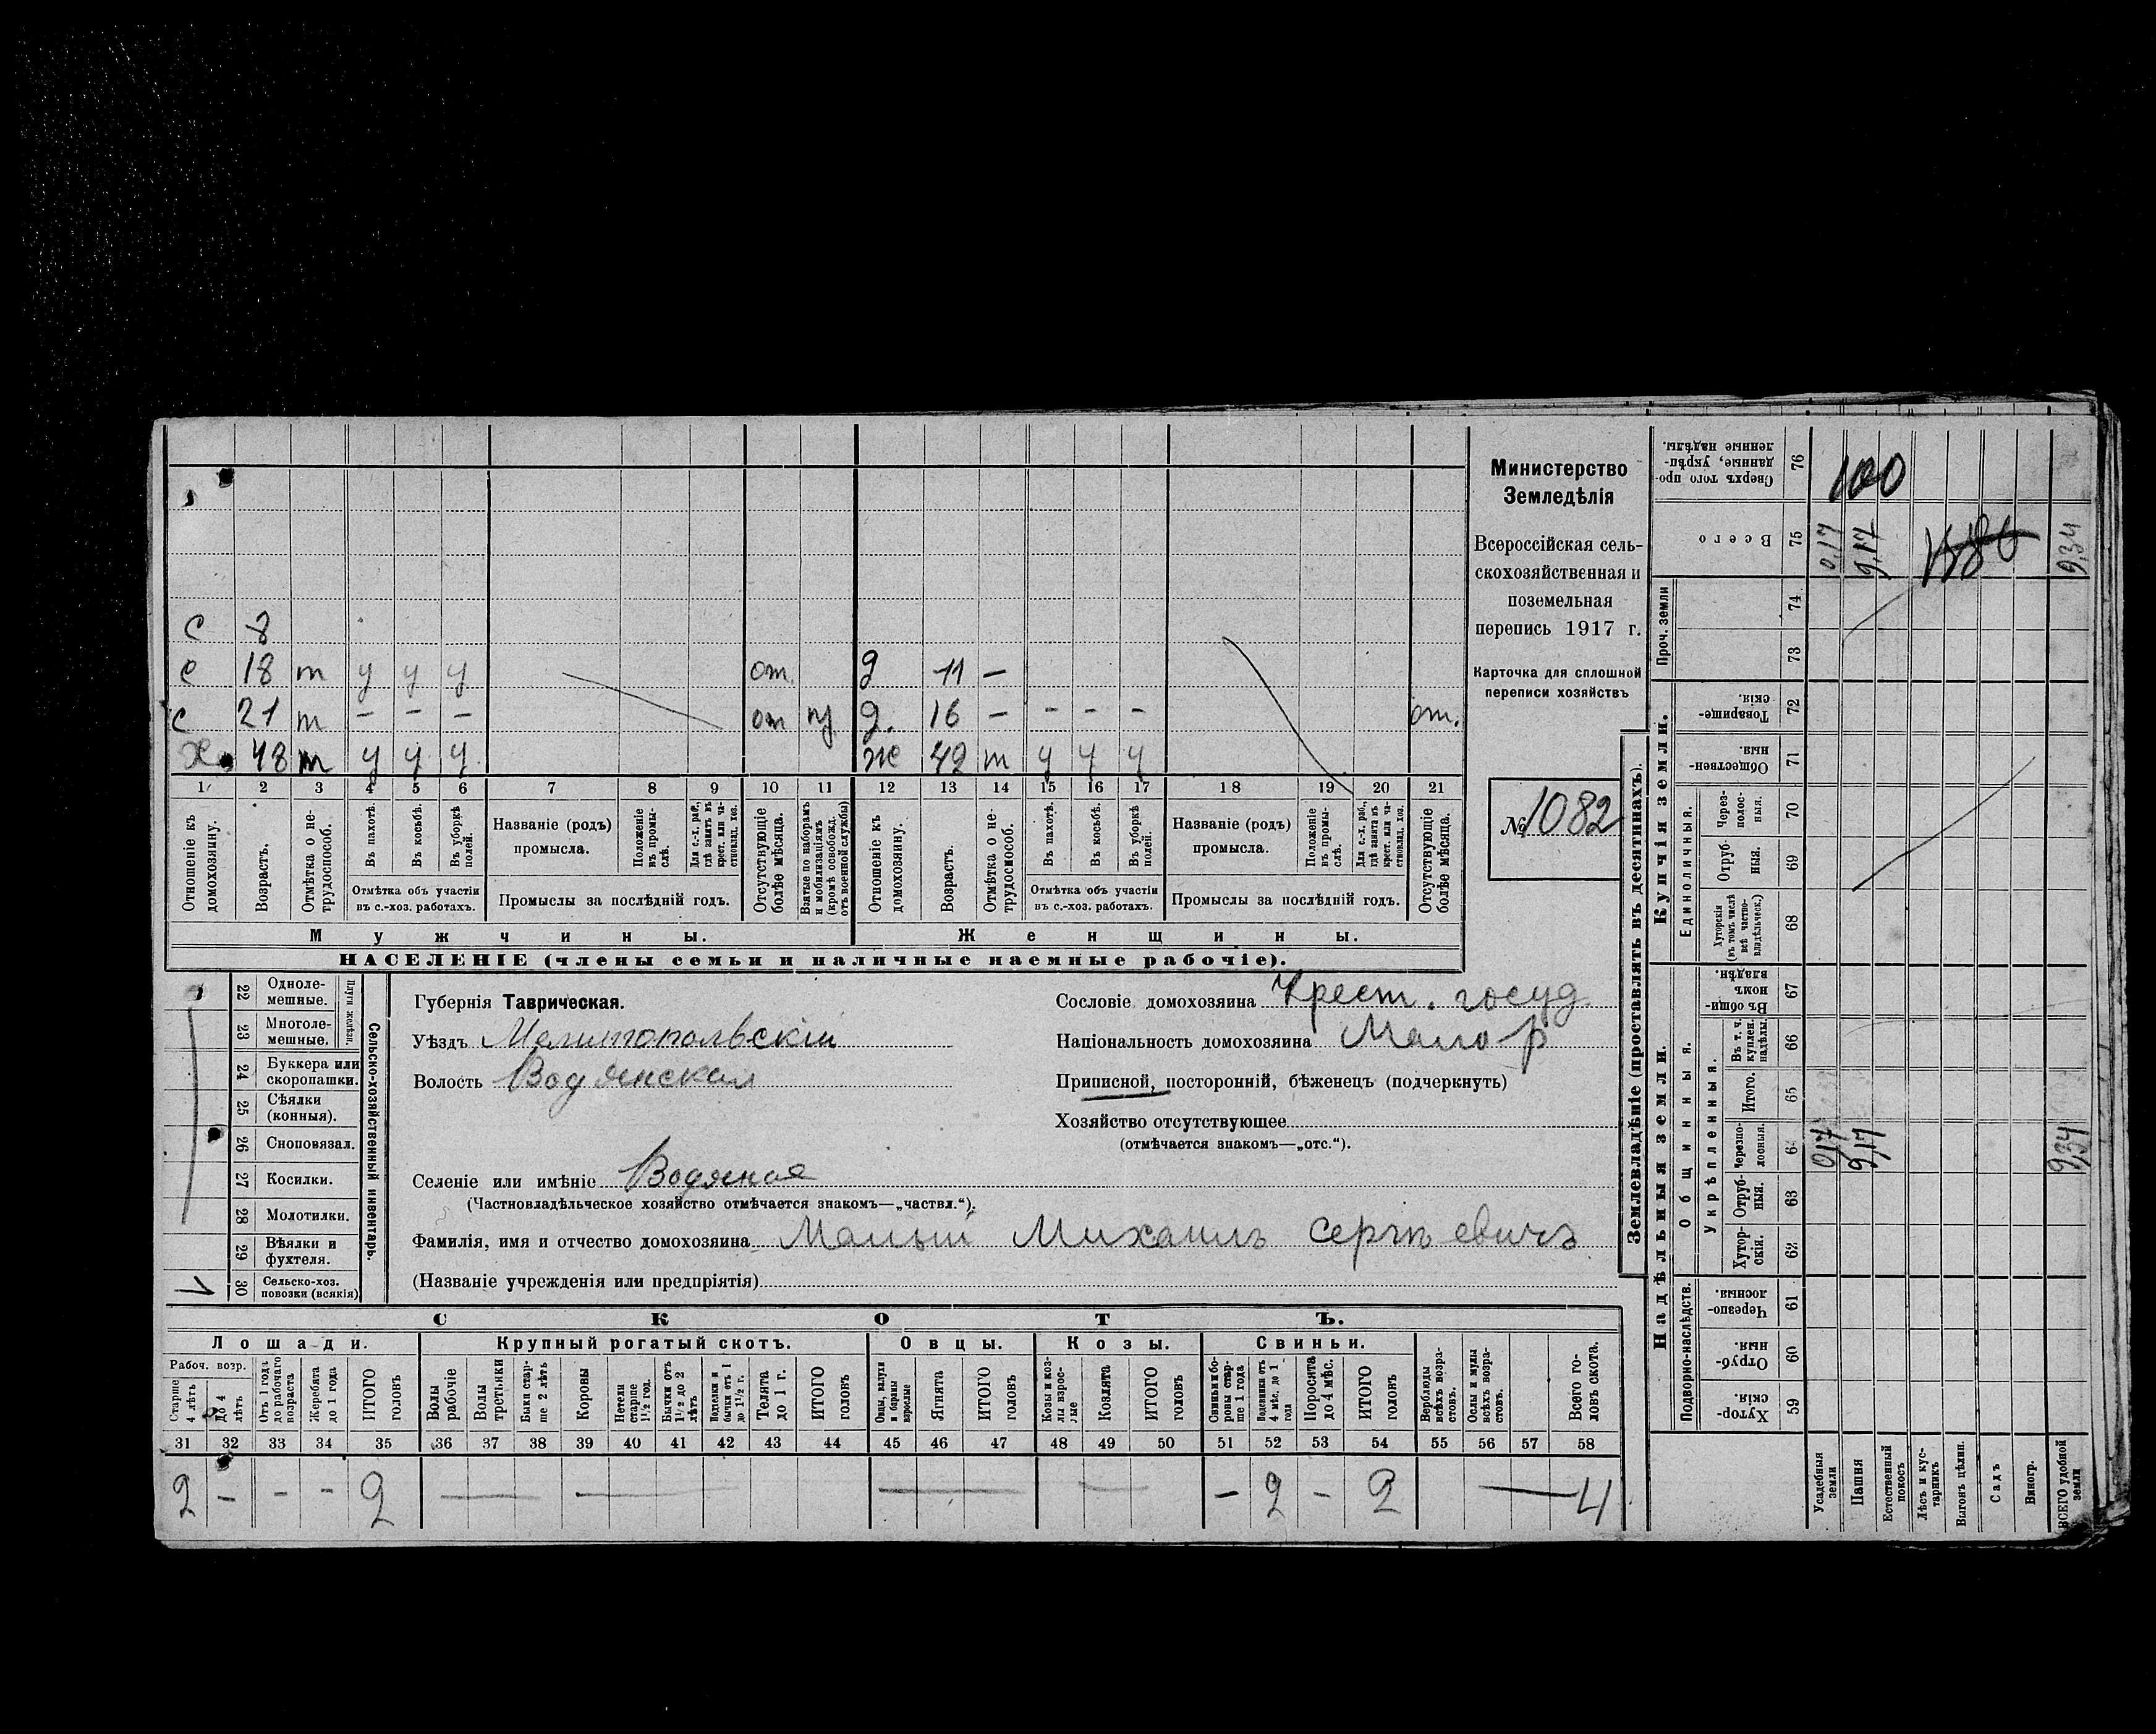 с 8
с 18 т у у у от. д 11 —
с 21 т — — — от д. 16 — — — — от.
Х. 48 т у у у ж 42 т у у у
1 2 3 4 5 6 7 8 9 10 11 12 13 14 15 16 17 18 19 20 21
Отношеніе къ домохозяину.
Возрастъ.
Отмѣтка о не-
трудоспособ.
Въ пахотѣ.
Въ косьбѣ.
Въ уборкѣ
полей.
Отмѣтка объ участіи
въ с.-хоз. работахъ.
Названіе (родъ)
промысла.
Положеніе
въ промы-
слѣ.
Для с.-х. раб.,
гдѣ занятъ въ
крест. или ча-
стновлад. хоз.
Промыслы за послѣдній годъ.
Отсутствующіе
болѣе мѣсяца.
Взятые по наборамъ
и мобилизаціямъ
(кромѣ освобожд.
отъ военной службы)
Отношеніе къ
домохозяину.
Возрастъ.
Отмѣтка о не-
трудоспособ.
Въ пахотѣ.
Въ косьбѣ.
Въ уборкѣ
полей.
Отмѣтка объ участіи
въ с.-хоз. работахъ.
Названіе (родъ)
промысла.
Положеніе
въ промы-
слѣ.
Для с.-х. раб.,
гдѣ занята въ
крест. или ча-
стновлад. хоз.
Промыслы за послѣдній годъ.
Отсутствующіе
болѣе мѣсяца.
Мужчины. Женщины.
НАСЕЛЕНІЕ (члены семьи и наличные наемные рабочіе).
Министерство
Земледѣлія
Всероссійская сель-
скохозяйственная и
поземельная
перепись 1917 г.
Карточка для сплошной
переписи хозяйствъ
№ 1082
Сельско-хозяйственный инвентарь.
Плуги желѣзн.
22 Одноле-
мешные.
23 Многоле-
мешные.
24 Буккера или
скоропашки.
25 Сѣялки
(конныя).
26 Сноповязал.
27 Косилки.
28 Молотилки.
29 Вѣялки и
фухтеля.
30 Сельско-хоз.
повозки (всякія)
Губернія Таврическая.
Уѣздъ Мелитопольскій
Волость Водянская
Селеніе или имѣніе Водяное
(Частновладѣльческое хозяйство отмѣчается знакомъ—„частвл.“).
Фамилія, имя и отчество домохозяина Малый Михаилъ Сергѣевичъ
(Названіе учрежденія или предпріятія)
Сословіе домохозяина Крест. госуд
Національность домохозяина Мало-р
Приписной, посторонній, бѣженецъ (подчеркнуть)
Хозяйство отсутствующее
(отмѣчается знакомъ—„отс.“).
СКОТЪ.
Лошади. Крупный рогатый скотъ. Овцы. Козы. Свиньи.
Рабоч. возр.
Старше
4 лѣтъ
До 4
лѣтъ
Отъ 1 года
до рабочаго
возраста
Жеребята
до 1 года
ИТОГО
головъ
Волы
рабочіе
Волы
третьяки
Быки стар-
ше 2 лѣтъ
Коровы
Нетели
старше
1½ год.
Бычки отъ
1½ до 2
лѣтъ
Подтелки и
бычки отъ 1
до 1½ г.
Телята
до 1 г.
ИТОГО
головъ
Овцы, валухи
и бараны
взрослые
Ягнята
ИТОГО
головъ
Козы и коз-
лы взрос-
лые
Козлята
ИТОГО
головъ
Свиньи и бо-
ровы стар-
ше 1 года
Подсвинки отъ
4 мѣс. до 1
года
Поросята
до 4 мѣс.
ИТОГО
головъ
Верблюды
всѣхъ возра-
стовъ.
Ослы и мулы
всѣхъ возра-
стовъ.
Всего го-
ловъ скота.
31 32 33 34 35 36 37 38 39 40 41 42 43 44 45 46 47 48 49 50 51 52 53 54 55 56 57 58
2 — — — 2 — 2 — 2 4
Землевладѣніе (проставлять въ десятинахъ).
Сверхъ того про-
данные, укрѣп-
ленные надѣлы.
76
100
Всего
75
0,17 9,17 9,34
Проч. земли
74
73
Купчія земли.
Товарище-
скія.
72
Обществен-
ныя.
71
Единоличныя.
Через-
полос-
ныя.
70
Отруб-
ныя.
69
Хуторскія
(въ томъ числѣ
всѣ частно-
владѣльческ.)
68
Надѣльныя земли.
Общинныя.
Въ общи-
номъ
владѣн.
67
Укрѣпленныя.
Въ т. ч.
куплен.
надѣлы.
66
Итого.
65
Черезпо-
лосныя.
64
0,17 9,17 9,34
Отруб-
ныя.
63
Хутор-
скія.
62
Подворно-наслѣдств.
Черезпо-
лосныя.
61
Отруб-
ныя.
60
Хутор-
скія.
59
Усадебныя
земли
Пашня
Естественный
покосъ
Лѣсъ и кус-
тарникъ
Выгонъ цѣлин.
Садъ
Виногр.
ВСЕГО удобной
земли